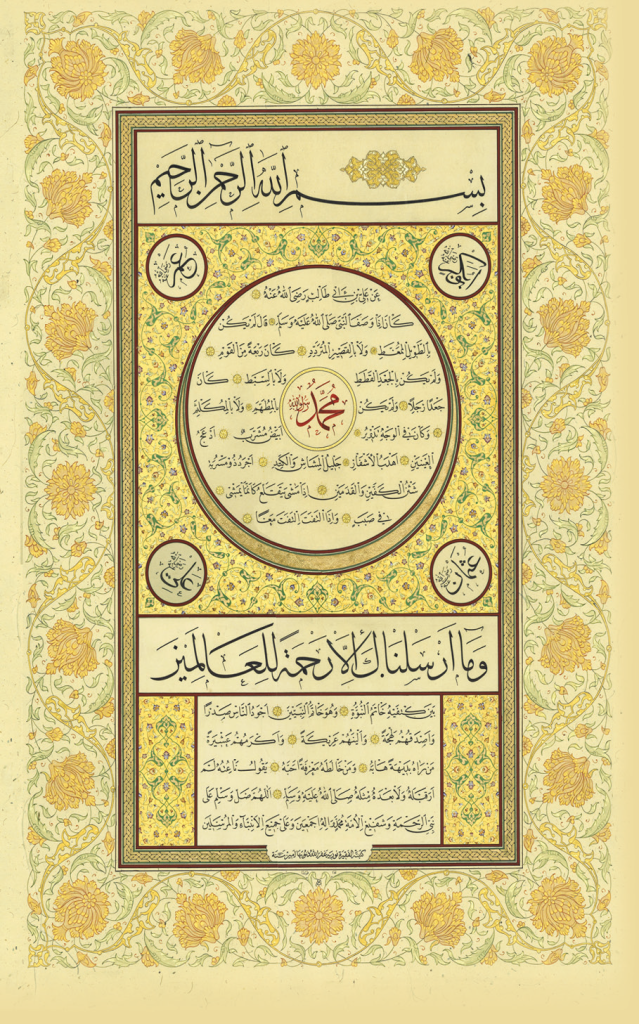 بِسْمِ اللهِ الرَّحْمٰنِ الرَّحِيمِ
ابوبكر
عمر
عَنْ عَلِيِّ بْنِ أَبِي طَالِبٍ رَضِيَ اللهُ عَنْهُ
كَانَ إِذَا وَصَفَ النَّبِيَّ صَلَّى اللهُ عَلَيْهِ وَسَلَّمَ قَالَ لَمْ يَكُنْ
بِالطَّوِيلِ الْمُمَّغِطِ وَلَا بِالْقَصِيرِ الْمُتَرَدِّدِ كَانَ رَبْعَةً مِنَ الْقَوْمِ
وَلَمْ يَكُنْ بِالْجَعْدِ الْقَطَطِ وَلَا بِالسَّبِطِ كَانَ
جَعْدًا رَجِلًا وَلَمْ يَكُنْ بِالْمُطَهَّمِ وَلَا بِالْمُكَلْثَمِ
مُحَمَّدٌ رسول الله
وَكَانَ فِي الْوَجْهِ تَدْوِيرٌ أَبْيَضُ مُشْرَبٌ أَدْعَجُ
الْعَيْنَيْنِ أَهْدَبُ الْأَشْفَارِ جَلِيلُ الْمُشَاشِ وَالْكَتَدِ أَجْرَدُ ذُو مَسْرُبَةٍ
شَثْنُ الْكَفَّيْنِ وَالْقَدَمَيْنِ إِذَا مَشَى يَتَقَلَّعُ كَأَنَّمَا يَمْشِي
فِي صَبَبٍ وَإِذَا الْتَفَتَ الْتَفَتَ مَعًا
عثمان
علي
وَمَا أَرْسَلْنَاكَ إِلَّا رَحْمَةً لِلْعَالَمِينَ
بَيْنَ كَتِفَيْهِ خَاتَمُ النُّبُوَّةِ وَهُوَ خَاتَمُ النَّبِيِّينَ أَجْوَدُ النَّاسِ صَدْرًا
وَأَصْدَقُهُمْ لَهْجَةً وَأَلْيَنُهُمْ عَرِيكَةً وَأَكْرَمُهُمْ عَشِيرَةً
مَنْ رَآهُ بَدِيهَةً هَابَهُ وَمَنْ خَالَطَهُ مَعْرِفَةً أَحَبَّهُ يَقُولُ نَاعِتُهُ لَمْ
أَرَ قَبْلَهُ وَلَا بَعْدَهُ مِثْلَهُ صَلَّى اللهُ عَلَيْهِ وَسَلَّمَ اللّٰهُمَّ صَلِّ وَسَلِّمْ عَلَى
نَبِيِّ الرَّحْمَةِ وَشَفِيعِ الْأُمَّةِ مُحَمَّدٍ وَآلِهِ أَجْمَعِينَ وَعَلَى جَمِيعِ الْأَنْبِيَاءِ وَالْمُرْسَلِينَ